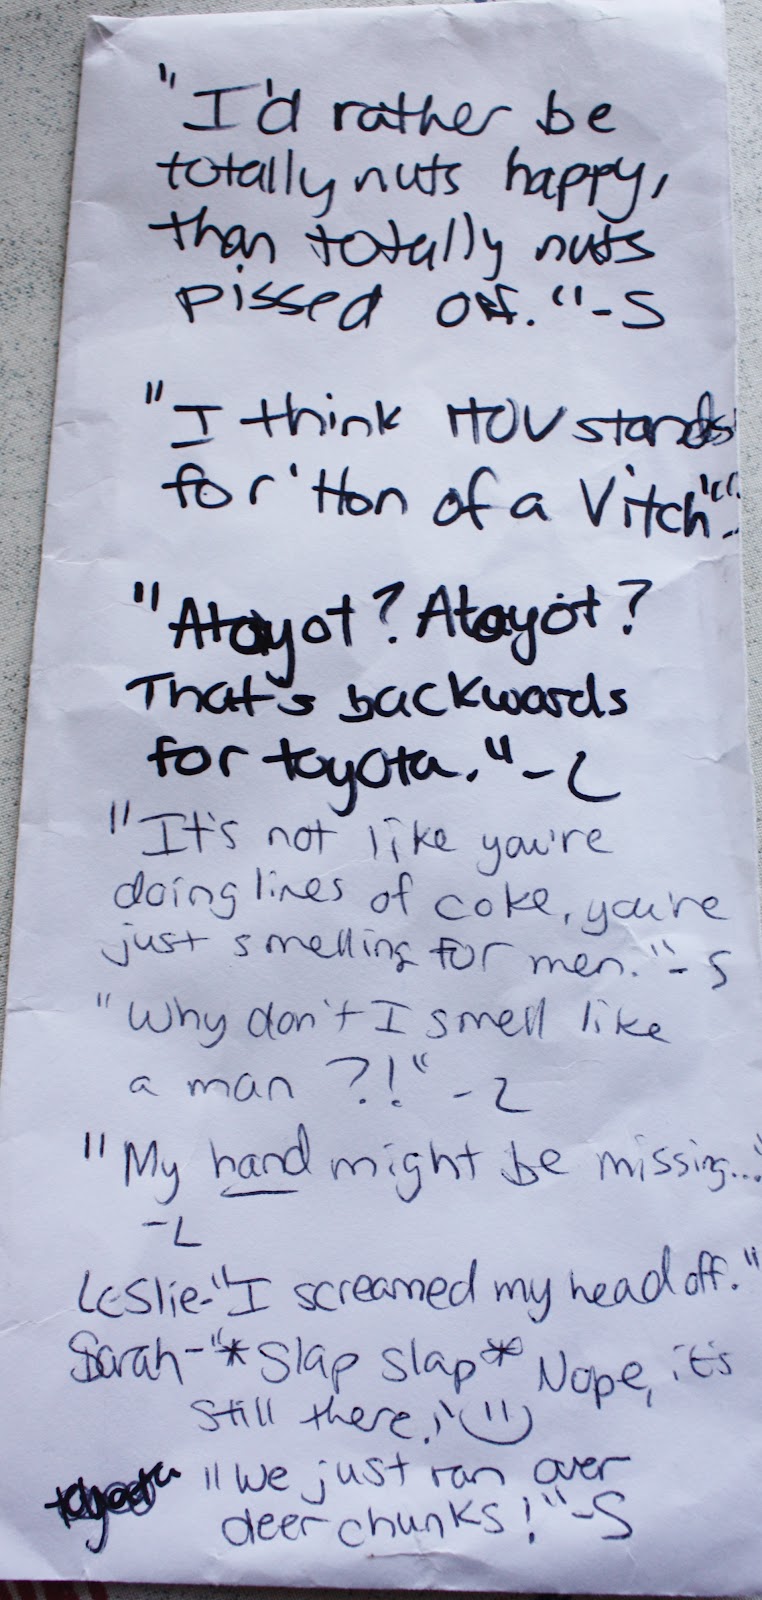 "I'd rather be
totally nuts happy,
than totally nuts
pissed off." -S
"I think HOV stands
for 'Hon of a Vitch'" -
"Atoyot? Atoyot?
That's backwards
for toyota." -L
"It's not like you're
doing lines of coke, you're
just smelling for men." -S
"Why don't I smell like
a man ?!" -L
"My hand might be missing..."
-L
Leslie- "I screamed my head off."
Sarah- "*Slap slap* Nope, it's
still there." :)
toyota "We just ran over
deer chunks!" -S